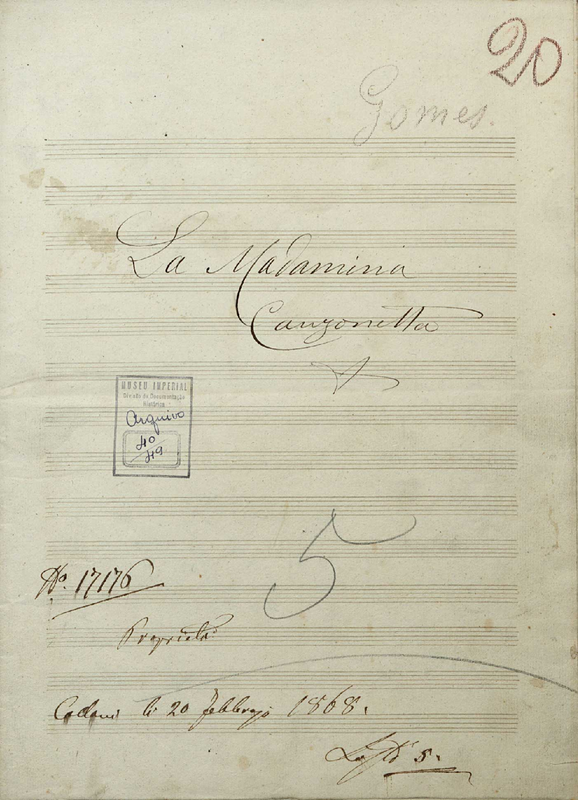 20
Gomes.
La Madamina
Canzonetta
MUSEU IMPERIAL
Divisão de Documentação
Histórica
Arquivo
40
5
No. 17176
Proprietà
li 20 febbrajo 1868.
5.